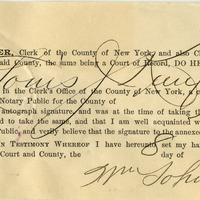 ER, Clerk of the County of New York, and also Cl
said County, the same being a Court of Record, DO HE
Louis J.
in the Clerk's Office of the County of New York, a
Notary Public for the County of
autograph signature, and was at the time of taking th
ed to take the same, and that I am well acquainted w
Public, and verily believe that the signature to the annexed
IN TESTIMONY WHEREOF I have hereunto set my han
Court and County, the 8 day of
Wm